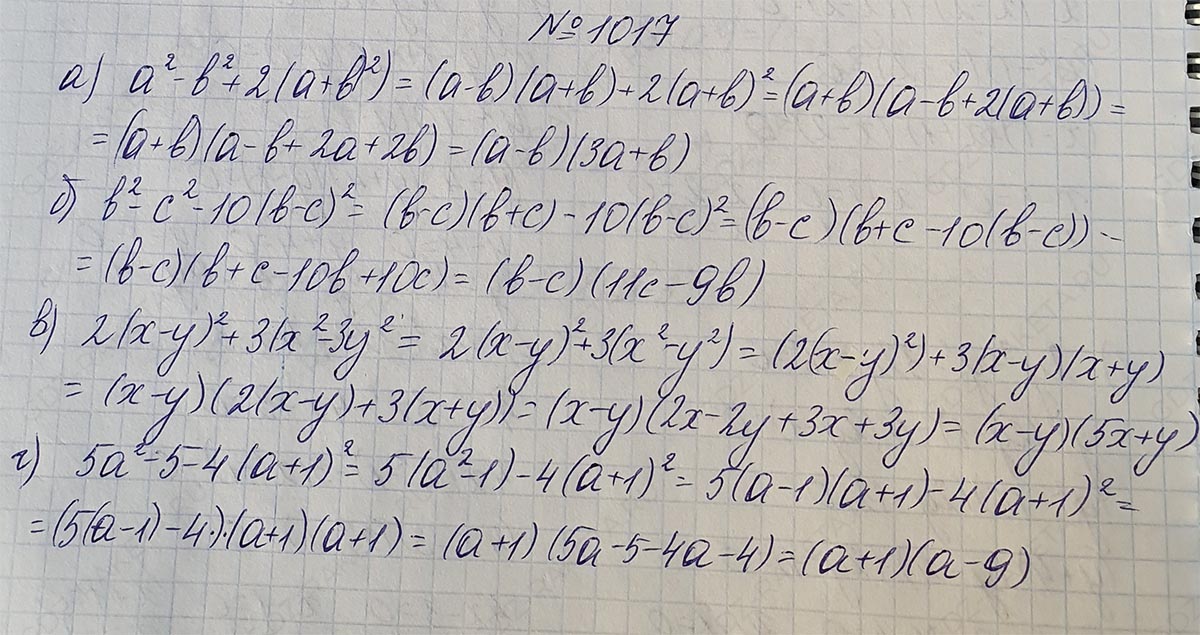 № 1017
а) a²-b²+2(a+b)²) = (a-b)(a+b)+2(a+b)²=(a+b)(a-b+2(a+b)) =
=(a+b)(a-b+2a+2b) = (a-b)(3a+b)
б) b²-c²-10(b-c)²= (b-c)(b+c)-10(b-c)²=(b-c)(b+c-10(b-c)) -
= (b-c)(b+c-10b+10c) = (b-c)(11c-9b)
в) 2(x-y)²+3(x²-3y² = 2(x-y)²+3(x²-y²) = (2(x-y)²)+3(x-y)(x+y)
= (x-y)(2(x-y)+3(x+y))= (x-y)(2x-2y+3x+3y) = (x-y)(5x+y)
г) 5a²-5-4(a+1)²= 5(a²-1)-4(a+1)²= 5(a-1)(a+1)-4(a+1)²=
=(5(a-1)-4)·(a+1)(a+1) = (a+1)(5a-5-4a-4)=(a+1)(a-9)